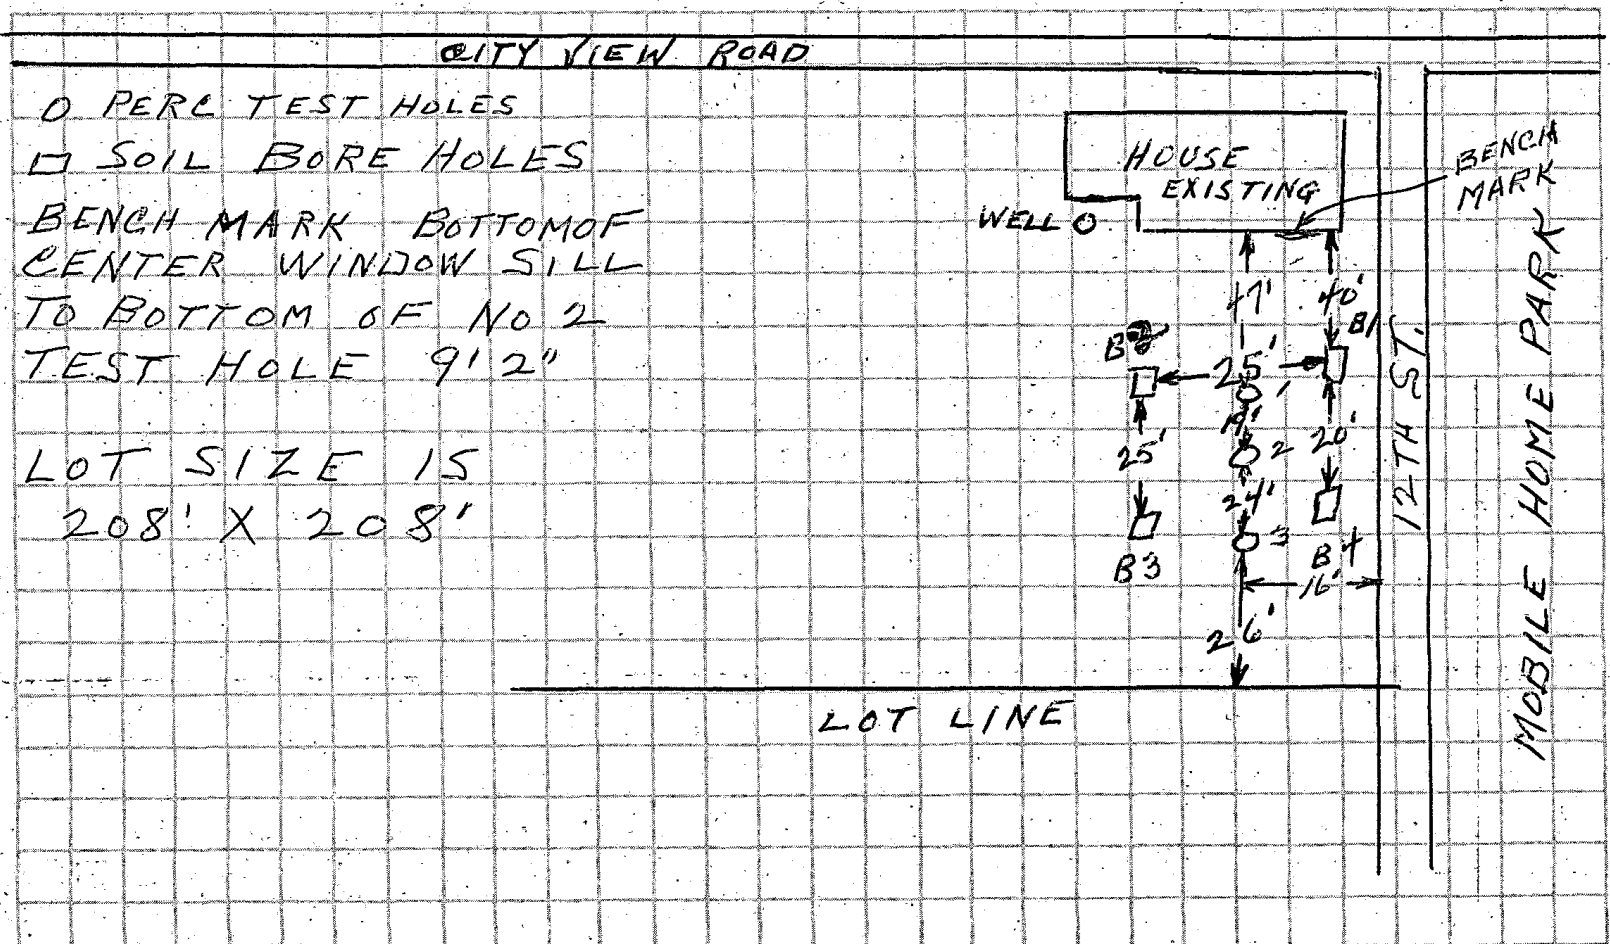 CITY VIEW ROAD
O PERC TEST HOLES
▭ SOIL BORE HOLES
BENCH MARK BOTTOM OF
CENTER WINDOW SILL
TO BOTTOM OF NO 2
TEST HOLE 9' 2"
LOT SIZE IS
208' X 208'
HOUSE
EXISTING
WELL
BENCH
MARK
47'
40'
B1
B
25'
1
19'
2
20'
25'
24'
3
B3
B4
16'
26'
LOT LINE
12TH ST.
MOBILE HOME PARK